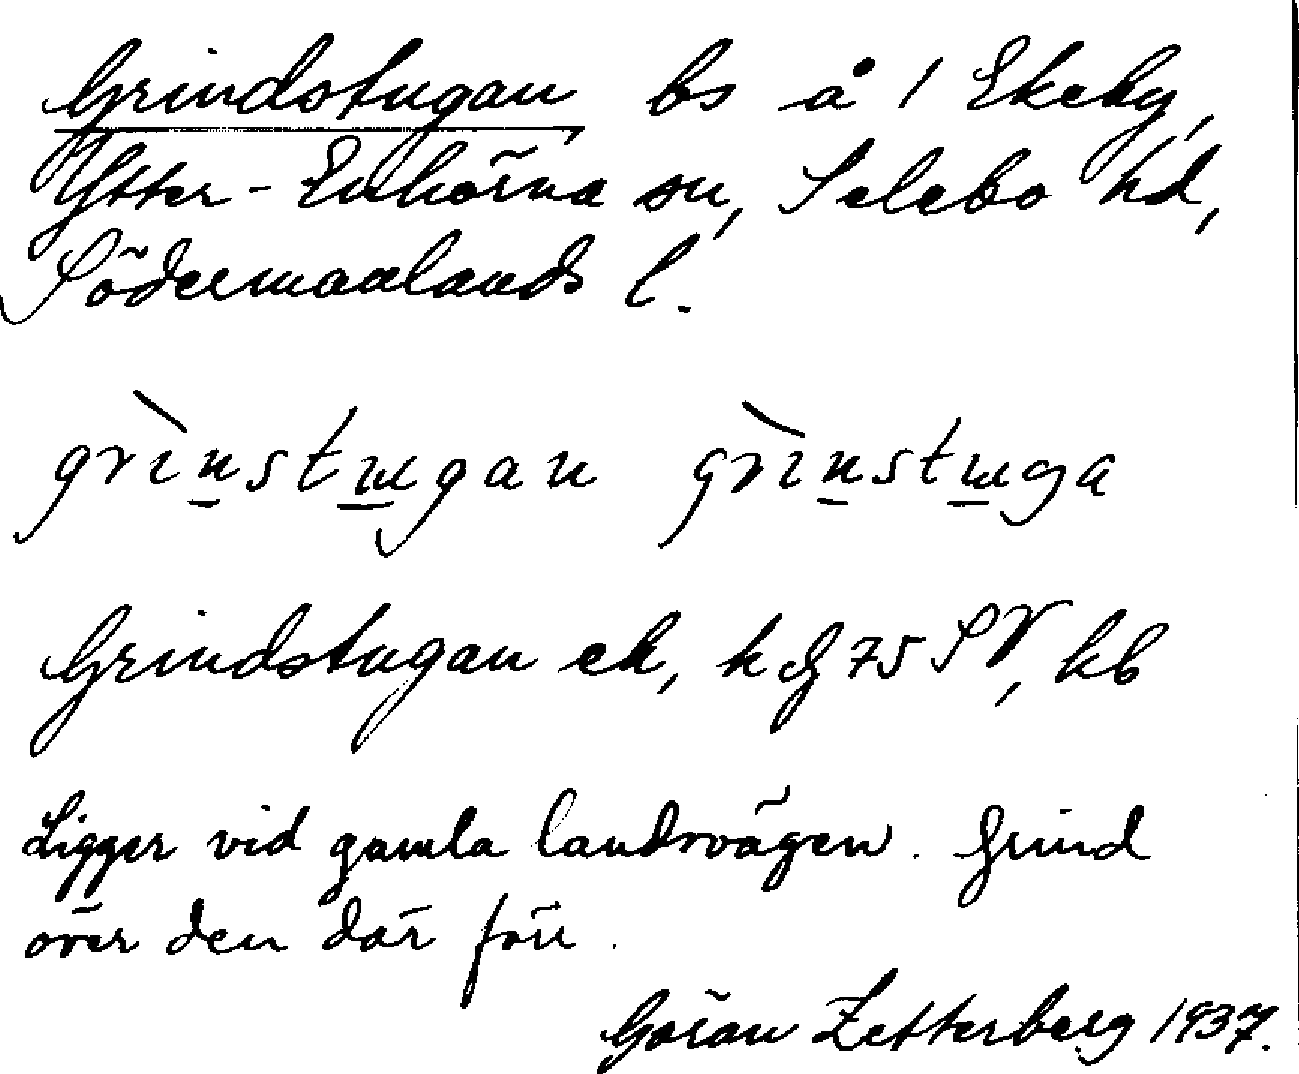 Grindstugan, bs å 1 Ekeby,
Ytter-Enhörna sn, Selebo hd,
Södermanlands l.
grìnstɯgan grìnstɯga
Grindstugan ek, k G 75 SV, kb
Ligger vid gamla landsvägen. Grind
över den där förr.
Göran Zetterberg 1937.